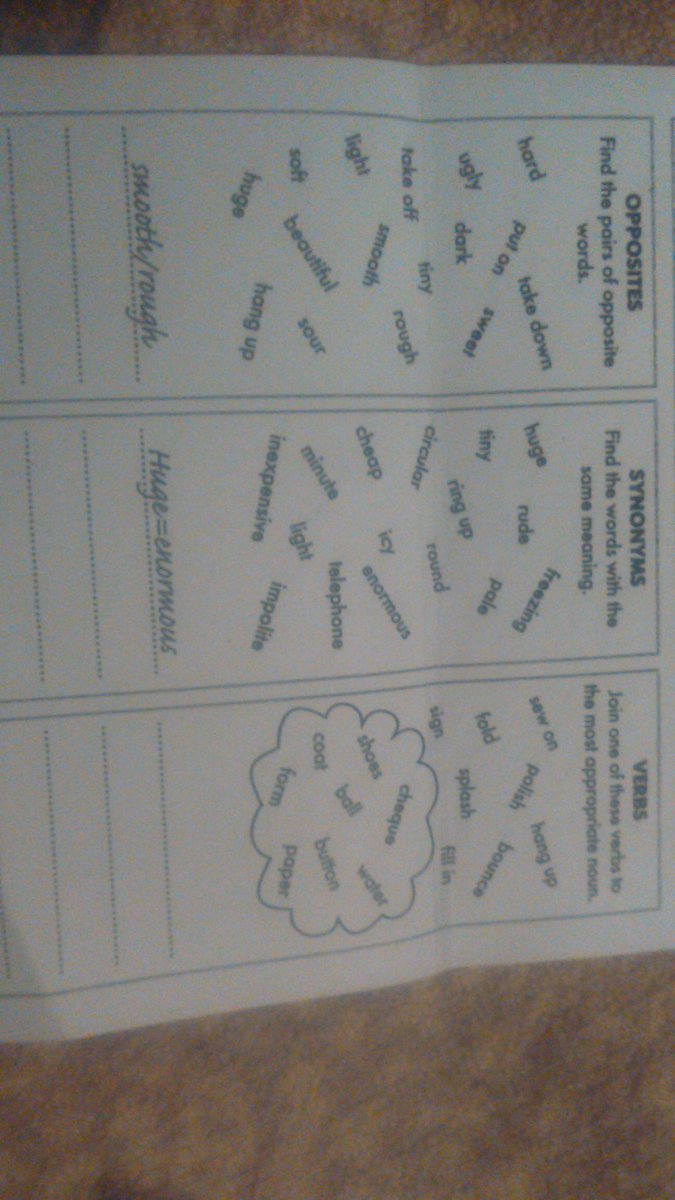 OPPOSITES
Find the pairs of opposite
words.
hard
put on
take down
ugly
dark
sweet
take off
tiny
rough
light
smooth
soft
beautiful
sour
huge
hang up
smooth/rough
SYNONYMS
Find the words with the
same meaning.
huge
rude
freezing
tiny
ring up
pale
circular
round
cheap
icy
enormous
minute
light
telephone
inexpensive
impolite
Huge=enormous
VERBS
Join one of these verbs to
the most appropriate noun.
sew on
polish
hang up
fold
splash
bounce
sign
fill in
shoes
cheque
coat
ball
water
farm
button
paper